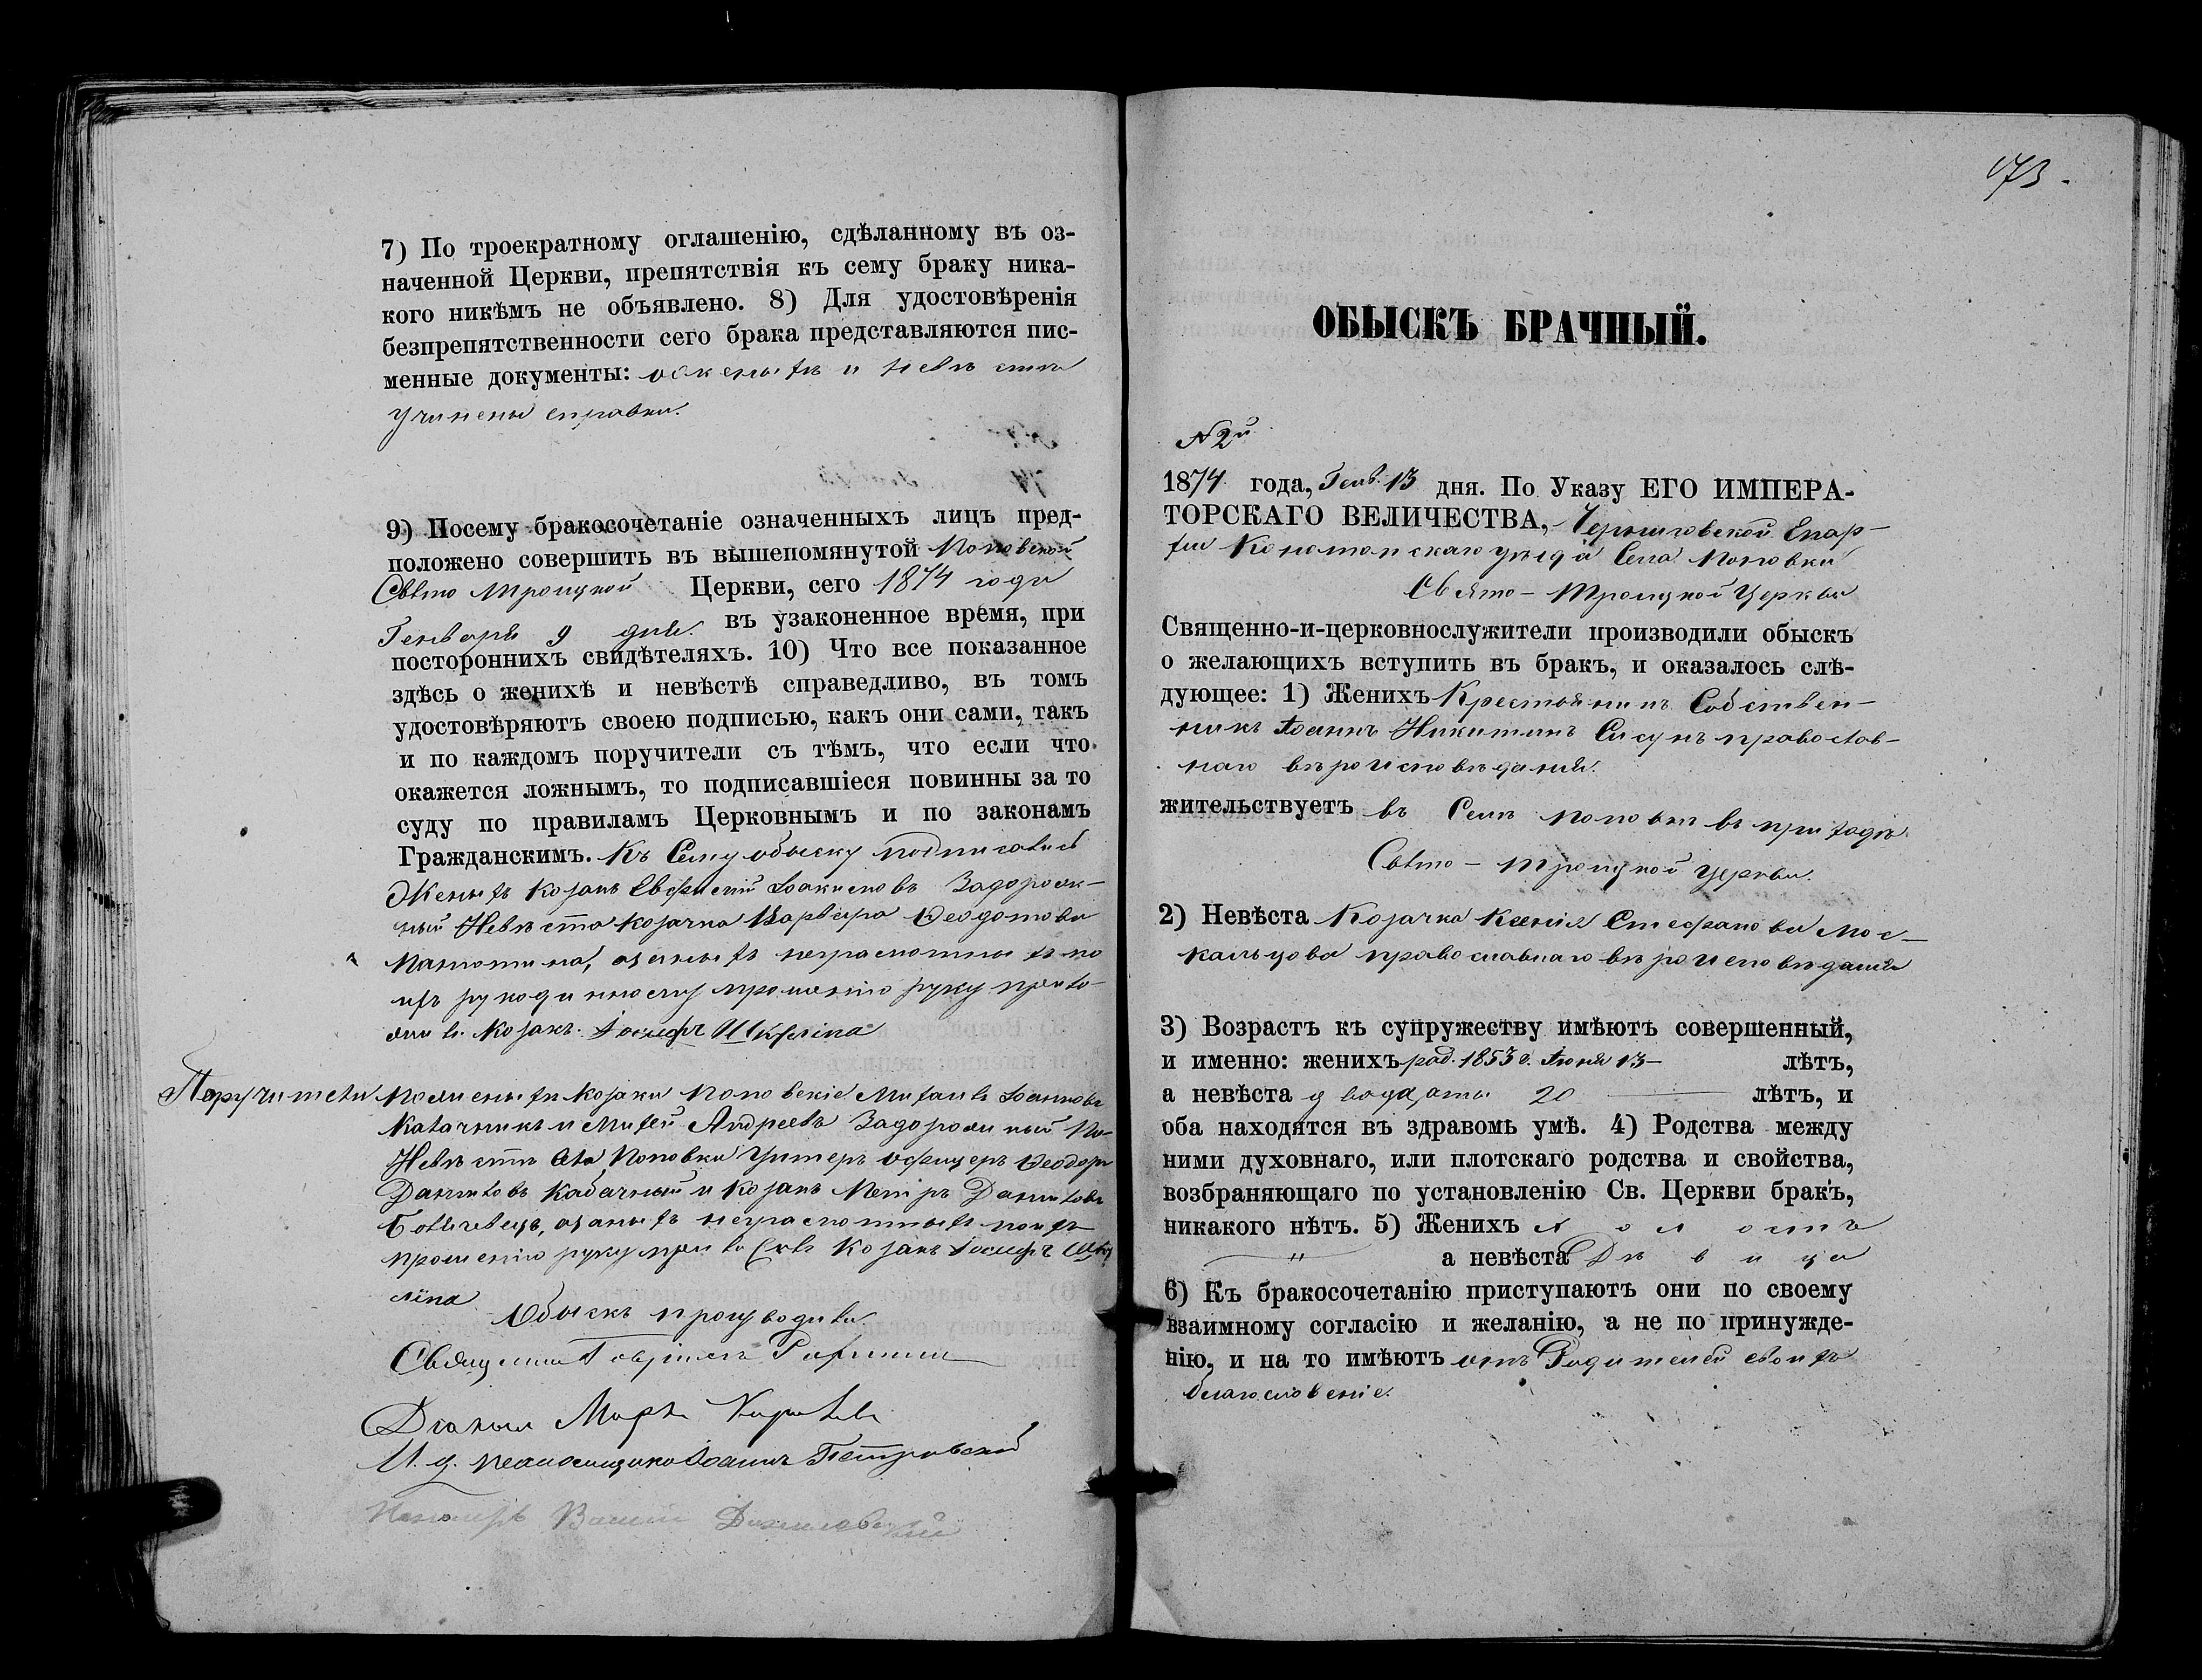 7) По троекратному оглашенію, сдѣланному въ оз-
наченной Церкви, препятствія къ сему браку ника-
кого никѣмъ не объявлено. 8) Для удостовѣренія
безпрепятственности сего брака представляются пис-
менные документы: о женыхѣ и невѣстѣ
учинены справки.
9) Посему бракосочетаніе означенныхъ лицъ пред-
положено совершить въ вышепомянутой Поповской
Свято Троицкой Церкви, сего 1874 года
Генваря 9 дня. въ узаконенное время, при
постороннихъ свидѣтеляхъ. 10) Что все показанное
здѣсь о женихѣ и невѣстѣ справедливо, въ томъ
удостовѣряютъ своею подписью, какъ они сами, такъ
и по каждомъ поручители съ тѣмъ, что если что
окажется ложнымъ, то подписавшіеся повинны за то
суду по правиламъ Церковнымъ и по законамъ
Гражданскимъ. Къ Сему обыску подписались
Женыхъ козакъ Евфимій Іоакимовъ Задорож-
ный Невѣста козачка Варвара Ѳеодотова
неграмотныхъ по
ихъ рукоданному прошенію руку прило-
жилъ козакъ Іосифъ Шкуріпа
Поручители По женыхѣ козаки Поповскіе Михаилъ Іоанновъ
и Андреевъ Задорожный По
Невѣстѣ села Поповки Унтеръ офицеръ Ѳеодоръ
Даниловъ Кабачный и козакъ Петръ Даниловъ
неграмотныхъ по ихъ
прошенію руку козакъ Іосифъ
Обыскъ производили
Священникъ Гавріилъ
Діаконъ Маркъ
И. д. псаломщика Іоаннъ Петровскій
Пономарь
173.
ОБЫСКЪ БРАЧНЫЙ.
N 2й
1874 года, Генв. 13 дня. По Указу ЕГО ИМПЕРА-
ТОРСКАГО ВЕЛИЧЕСТВА, Черниговской Епар-
хіи Конотопскаго уѣзда Села Поповки
Свято-Троицкой Церкви
Священно-и-церковнослужители производили обыскъ
о желающихъ вступить въ бракъ, и оказалось слѣ-
дующее: 1) Женихъ Крестьянинъ Собствен-
никъ Іоаннъ Никитинъ Сисунъ православ-
наго вѣроисповѣданія.
жительствуетъ въ Селѣ Поповкѣ въ приходѣ
Свято-Троицкой Церкви.
2) Невѣста Козачка Ксенія Стефанова Мос-
кальцова православнаго вѣроисповѣданія
3) Возрастъ къ супружеству имѣютъ совершенный,
и именно: женихъ род. 1853 г. Іюня 13- лѣтъ,
а невѣста двадцать 20 лѣтъ, и
оба находятся въ здравомъ умѣ. 4) Родства между
ними духовнаго, или плотскаго родства и свойства,
возбраняющаго по установленію Св. Церкви бракъ,
никакого нѣтъ. 5) Женихъ холостъ
" а невѣста Дѣвица
6) Къ бракосочетанію приступаютъ они по своему
взаимному согласію и желанію, а не по принужде-
нію, и на то имѣютъ отъ Родителей своихъ
благословеніе.